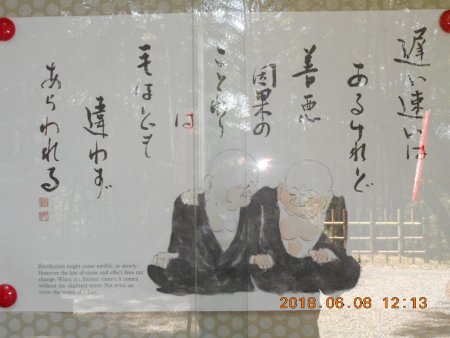 遅い速いは
あるけれど
善悪
因果の
ことわり
は
毛ほども
違わず
あらわれる
Retribution might come swiftly, or slowly.
However the law of cause and effect does not
change. When retribution comes, it comes
without the slightest error. Not even an
error the width of a hair.
2018.06.08 12:13